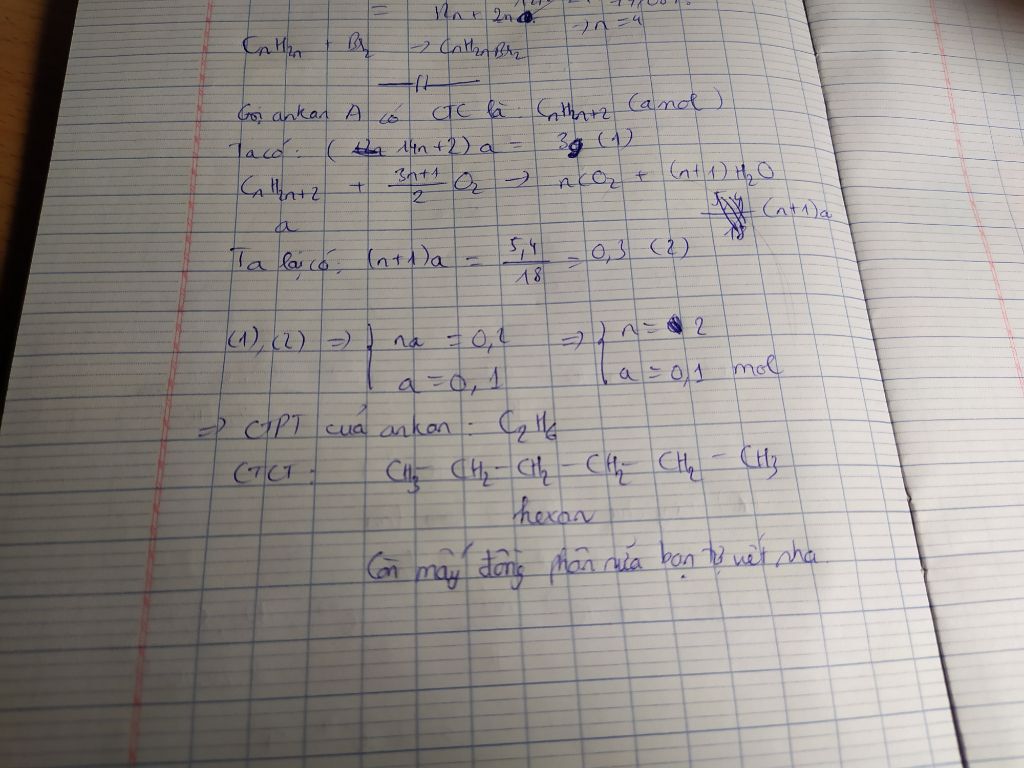 = 12n + 2n
⇒ n = 4
CnH2n + Br2 → CnH2nBr2
Gọi ankan A có CTC là: CnH2n+2 (a mol)
Ta có: (14n+2) a = 3g (1)
CnH2n+2 + 3n+1/2 O2 → nCO2 + (n+1) H2O
a (n+1)a
Ta lại có: (n+1)a = 5,4/18 = 0,3 (2)
(1), (2) ⇒ { na = 0,2 ⇒ { n = 2
a = 0,1 a = 0,1 mol
⇒ CTPT của ankan: C2H6
CTCT: CH3 - CH2 - CH2 - CH2 - CH2 - CH3
hexan
Còn mấy đồng phân nữa bạn tự viết nha